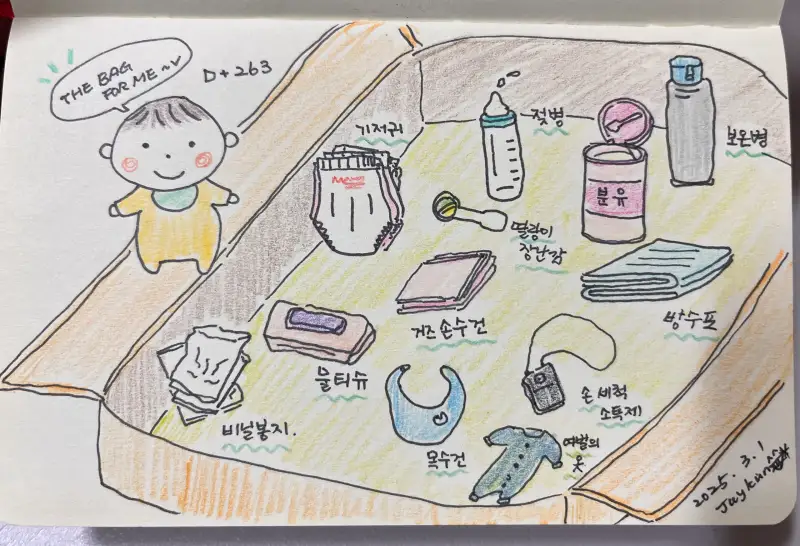 THE BAG
FOR ME ~
D+263
기저귀
젖병
보온병
분유
딸랑이
장난감
거즈 손수건
방수포
물티슈
손 세척
소독제
비닐봉지.
목수건
여벌의
옷
2025. 3. 1